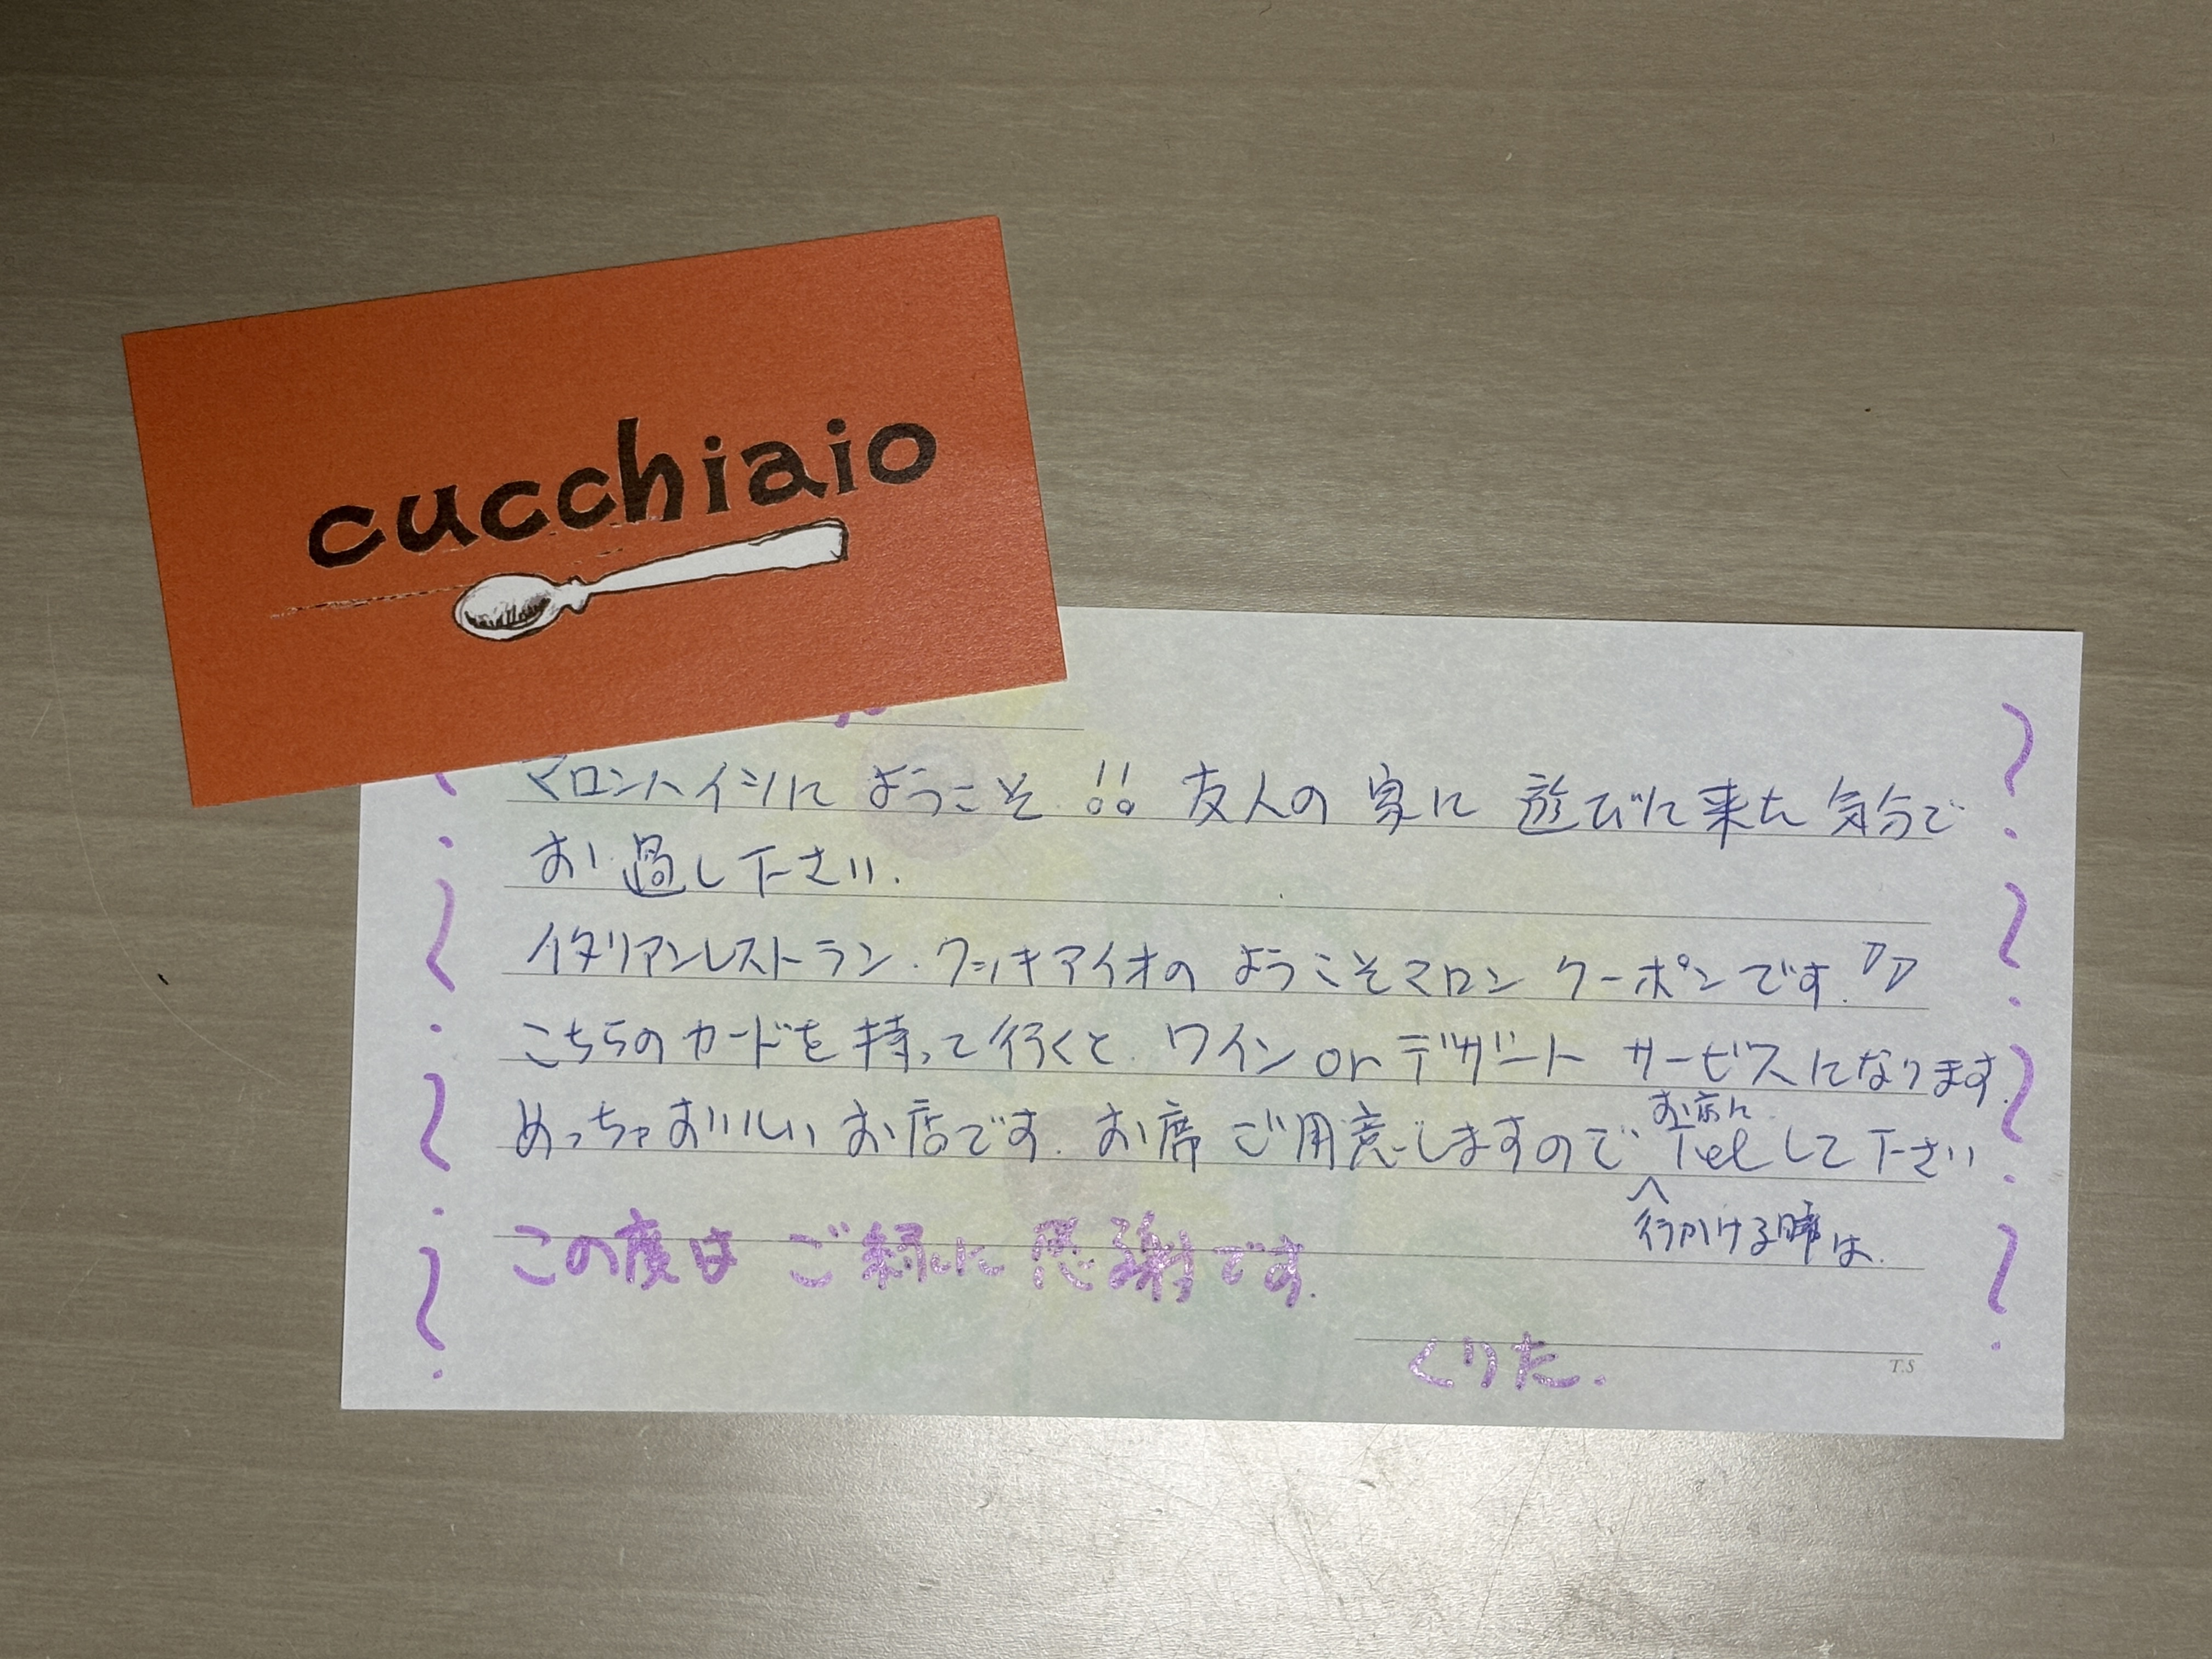 cucchiaio
マロンハイツにようこそ!! 友人の家に遊びに来た気分で
お過し下さい.
イタリアンレストラン.クッキアイオのようこそマロンクーポンです.
こちらのカードを持って行くと.ワインorデザートサービスになります.
めっちゃおいしいお店です.お席ご用意しますのでお店にTelして下さい
行かける時は.
この度はご縁に感謝です.
くりた.
T.S